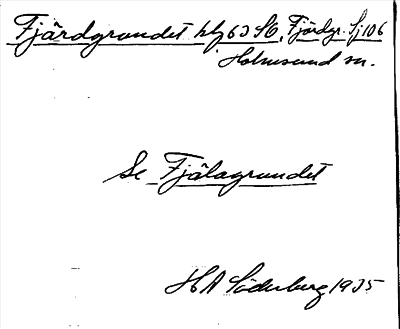 Fjärdgrundet hlg 63 SO, Fjärdgr. Sj 106
Holmsund sn.
Se Fjälagrundet
H A Söderberg 1935